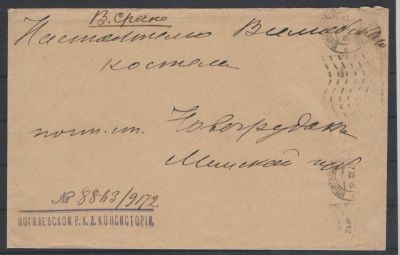 В. Срочно
Настоятелю
костела
почт. ст. Новогрудокъ
Минской губ
№ 8863/9172
МОГИЛЕВСКОЙ Р. К. Д. КОНСИСТОРІИ.